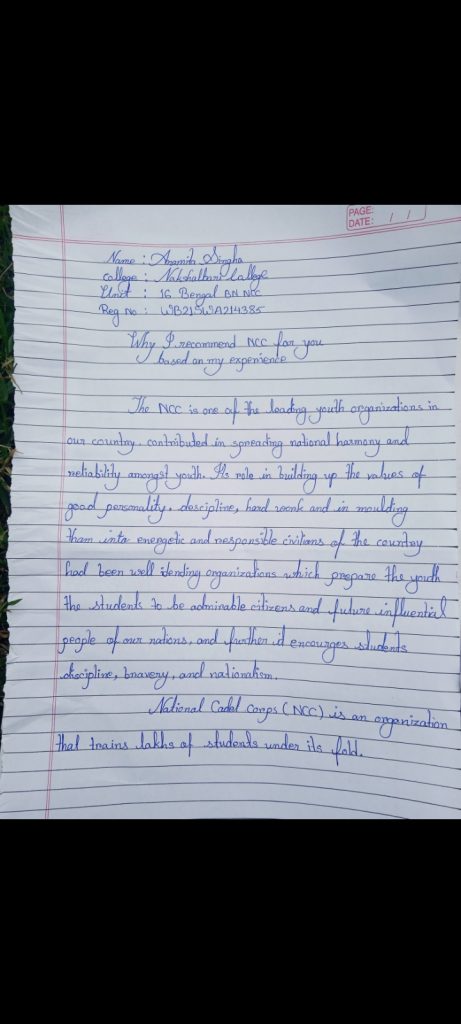 PAGE:
DATE: / /
Name : Anamita Singha
College : Nakshalbari College
Unit : 16 Bengal BN NCC
Reg No : WB21SWA214385
Why I recommend NCC for you
based on my experience
The NCC is one of the leading youth organizations in
our country. contributed in spreading national harmony and
reliability amongst youth. Its role in building up the values of
good personality, descipline, hard work and in moulding
them into energetic and responsible civitians of the country
had been well idending organizations which prepare the youth
the students to be admirable citizens and future influential
people of our nations, and further it encourges students
discipline, bravery, and nationatism.
National Cadet Corps (NCC) is an organization
that trains lakhs of students under its fold.